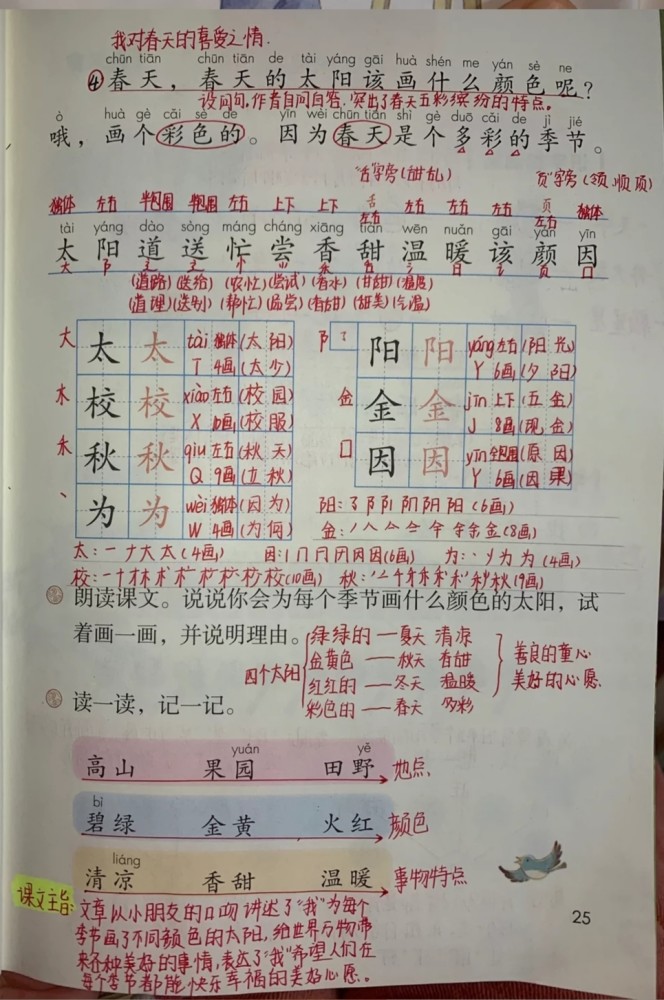 我对春天的喜爱之情.
chūn tiān chūn tiān de tài yáng gāi huà shén me yán sè ne
④春天，春天的太阳该画什么颜色呢？
设问句,作者自问自答.突出了春天五彩缤纷的特点。
ò huà gè cǎi sè de yīn wèi chūn tiān shì gè duō cǎi de jì jié
哦，画个彩色的。因为春天是个多彩的季节。
"舌"字旁(甜乱) 页字旁(领.顺顶)
独体 左右 半包围 半包围 左右 上下 上下 舌 左右 左右 左右 左右 页 左右 独体
tài yáng dào sòng máng cháng xiāng tián wēn nuǎn gāi yán yīn
太阳道送忙尝香甜温暖该颜因
大 阝 辶 辶 忄 ⺌ 禾 舌 氵 日 讠 页 囗
(道路)(送给)(农忙)(尝试)(香水)(甘甜)(温度)
(道理)(送别)(帮忙)(品尝)(香甜)(甜美)(气温)
大 太 太 tài 独体(太阳)
T 4画(太少)
阝 阳 阳 yáng 左右(阳光)
Y 6画(夕阳)
木 校 校 xiào 左右(校园)
X 10画(校服)
金 金 金 jīn 上下(五金)
J 8画(现金)
禾 秋 秋 qiu 左右(秋天)
Q 9画(立秋)
囗 因 因 yīn 全包围(原因)
Y 6画(因果)
丶 为 为 wèi 独体(因为)
W 4画(为何)
阳: (6画)
金: (8画)
太: 一ナ大太(4画) 因: (6画) 为: (4画)
校: (10画) 秋: (9画)
朗读课文。说说你会为每个季节画什么颜色的太阳，试
着画一画，并说明理由。
四个太阳
绿绿的—夏天 清凉
金黄色—秋天 香甜
红红的—冬天 温暖
彩色的—春天 多彩
善良的童心
美好的心愿
读一读，记一记。
yuán yě
高山 果园 田野 地点
bì
碧绿 金黄 火红 颜色
liáng
清凉 香甜 温暖 事物特点
课文主旨:
文章从小朋友的口吻讲述了"我"为每个
季节画了不同颜色的太阳,给世界万物带
来各种美好的事情,表达了"我"希望人们在
每个季节都能快乐幸福的美好心愿。
25